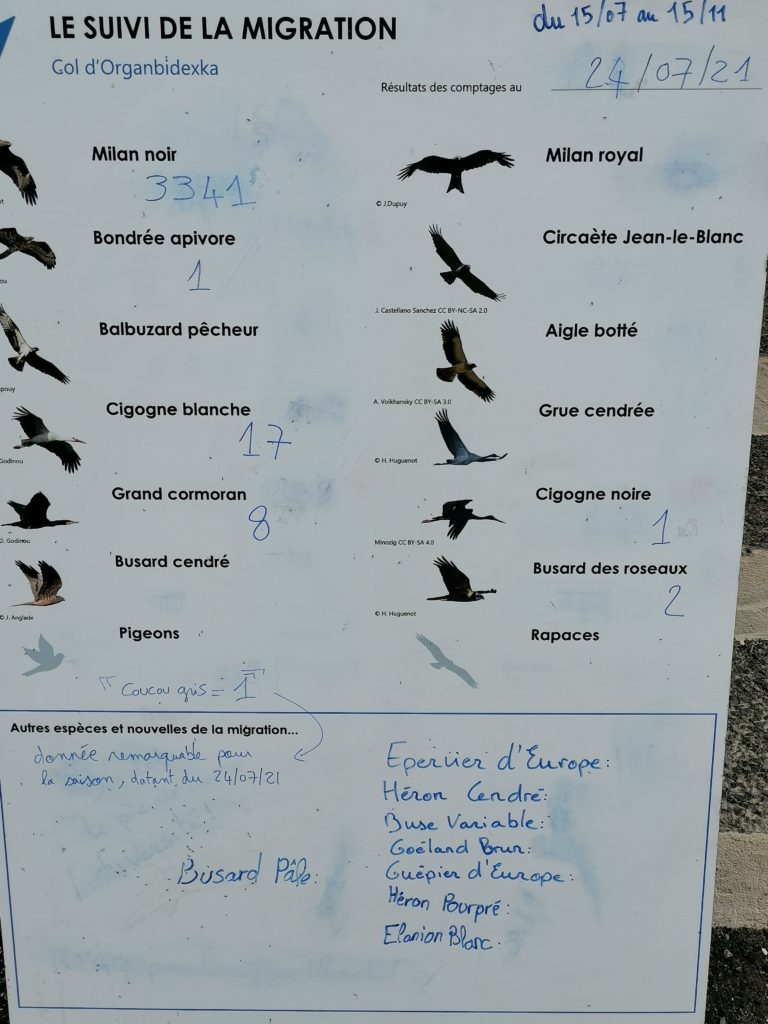 LE SUIVI DE LA MIGRATION
du 15/07 au 15/11
Col d'Organbidexka
Résultats des comptages au 24/07/21
Milan noir
3341
Milan royal
© J.Dupuy
Bondrée apivore
1
Circaète Jean-le-Blanc
J. Castellano Sanchez CC BY-NC-SA 2.0
Balbuzard pêcheur
Aigle botté
A. Voikhansky CC BY-SA 3.0
Cigogne blanche
17
Grue cendrée
Godinou
© H. Huguenot
Grand cormoran
8
Cigogne noire
1
D. Godinou
Minozig CC BY-SA 4.0
Busard cendré
Busard des roseaux
2
© J. Anglade
© H. Huguenot
Pigeons
Rapaces
Coucou gris = 1
Autres espèces et nouvelles de la migration...
donnée remarquable pour
la saison, datant du 24/07/21
Busard Pâle:
Epervier d'Europe:
Héron Cendré:
Buse Variable:
Goéland Brun:
Guêpier d'Europe:
Héron Pourpré:
Elanion Blanc: